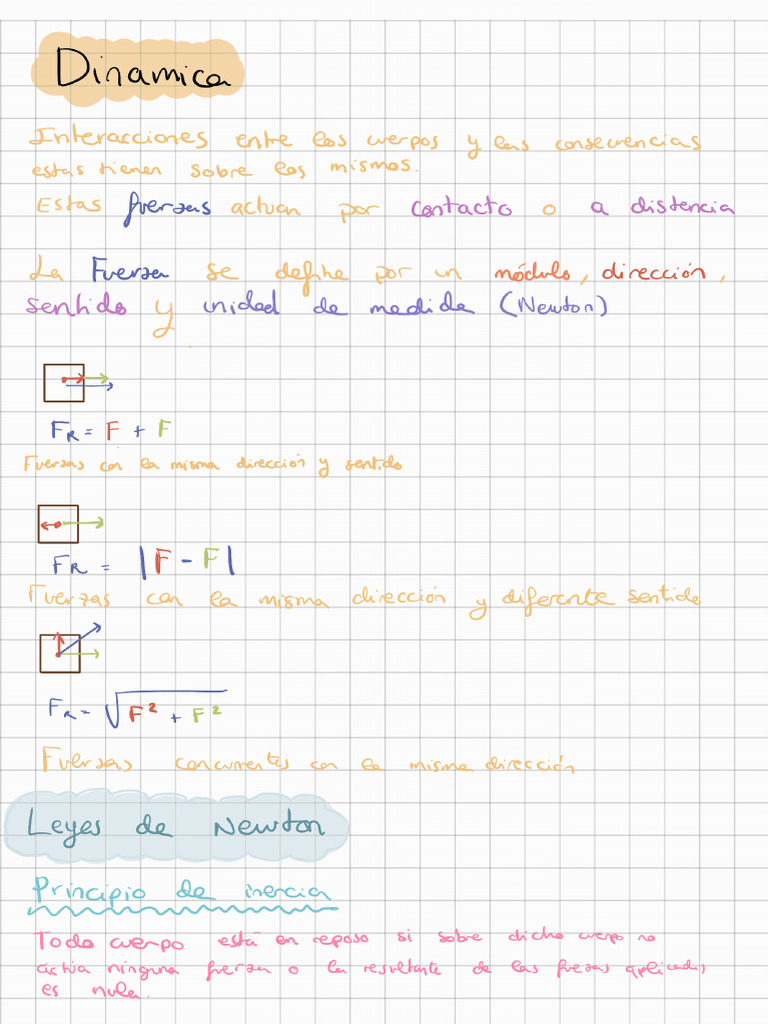 Dinamica
Interacciones entre los cuerpos y las consecuencias
estas tienen sobre los mismos.
Estas fuerzas actuan por contacto o a distencia
La Fuerza se define por un módulo, dirección,
sentido y unidad de medida (Newton)
FR = F + F
Fuerzas con la misma dirección y sentido
FR = |F - F|
Fuerzas con la misma dirección y diferente sentido
FR = √F² + F²
Fuerzas concurrentes con la misma dirección
Leyes de Newton
Principio de inercia
Todo cuerpo está en reposo si sobre dicho cuerpo no
actua ninguna fuerza o la resultante de las fuerzas aplicadas
es nula.